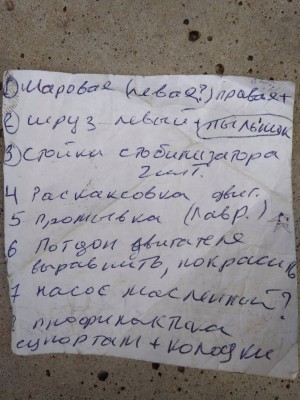 1) Шаровая (левая?) правая+
2) шруз левый + пыльник
3) Стойки стобилизатора
2шт.
4 Раскаксовка двиг.
5 Промывка (Лавр.)
6 Потдон двигателя
выравнить, покрасить
7 насос масленный?
профилактика
суппортам + колодки